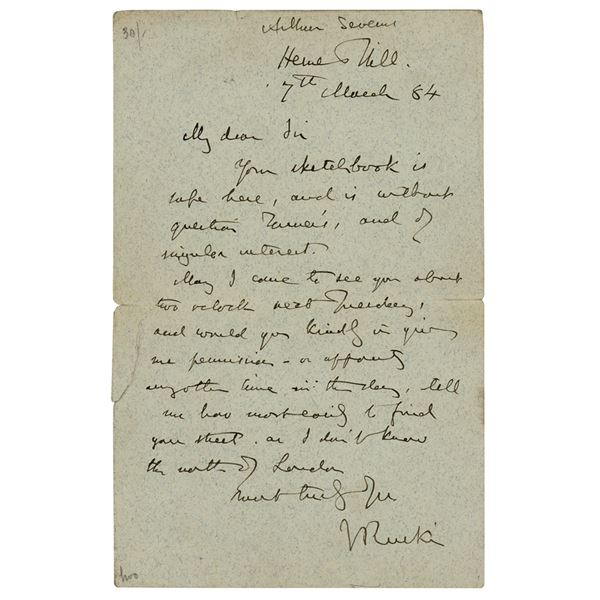 30/-
Arthur Severn
Herne Hill.
7th March 84
My dear Sir
Your sketchbook is
safe here, and is without
question Turner's, and of
singular interest.
May I come to see you about
two oclock next Tuesday,
and would you kindly in giving
me permission - or appointing
any other time in the day, tell
me how most easily to find
your street. as I don't know
the north of London
Most truly Yrs
JRuskin